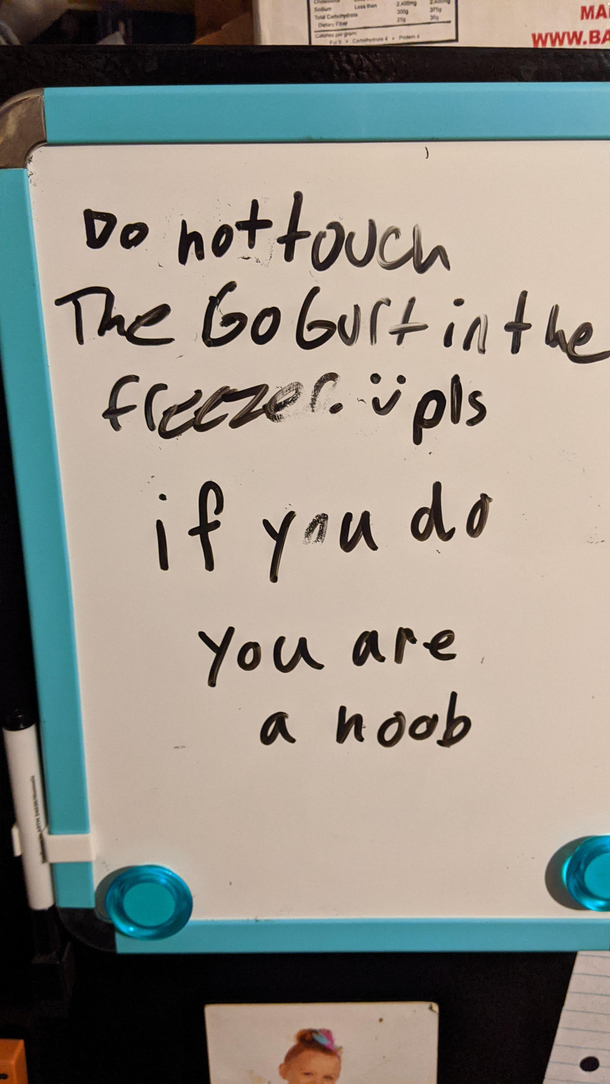 Sodium Less than 2,400mg 2,400mg
Total Carbohydrate 300g 375g
Dietary Fiber 25g 30g
Calories per gram:
Fat 9 • Carbohydrate 4 • Protein 4
MA
WWW.BA
Do not touch
The GoGurt in the
freezer. pls
if you do
you are
a noob